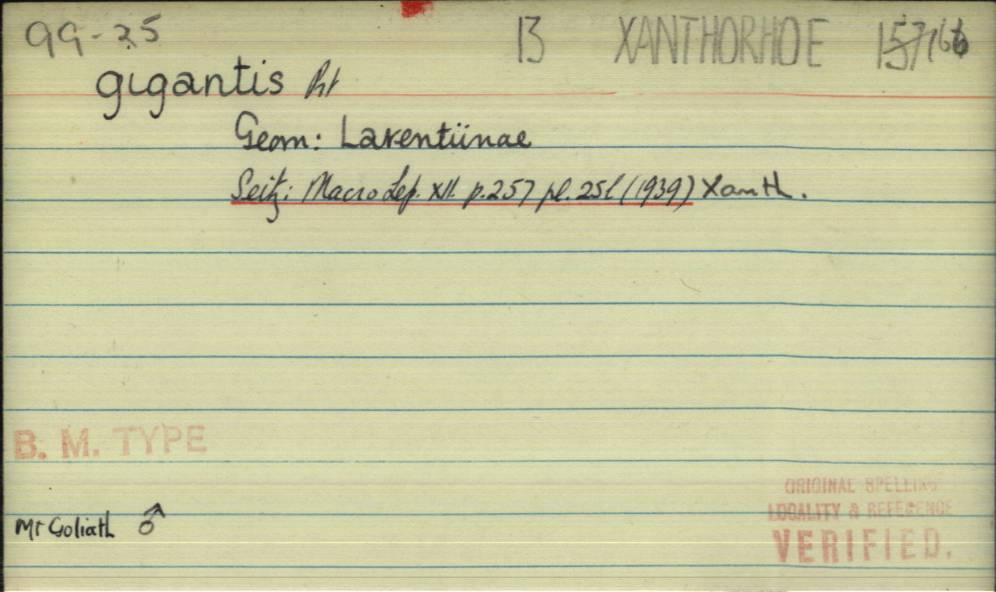 99-25 13 XANTHORHOE 157/166
gigantis Prt
Geom: Larentiinae
Seitz: Macro Lep. XII. p.257 pl. 25l (1939) Xanth.
B. M. TYPE
ORIGINAL SPELLING
LOCALITY & REFERENCE
VERIFIED.
Mt Goliath ♂